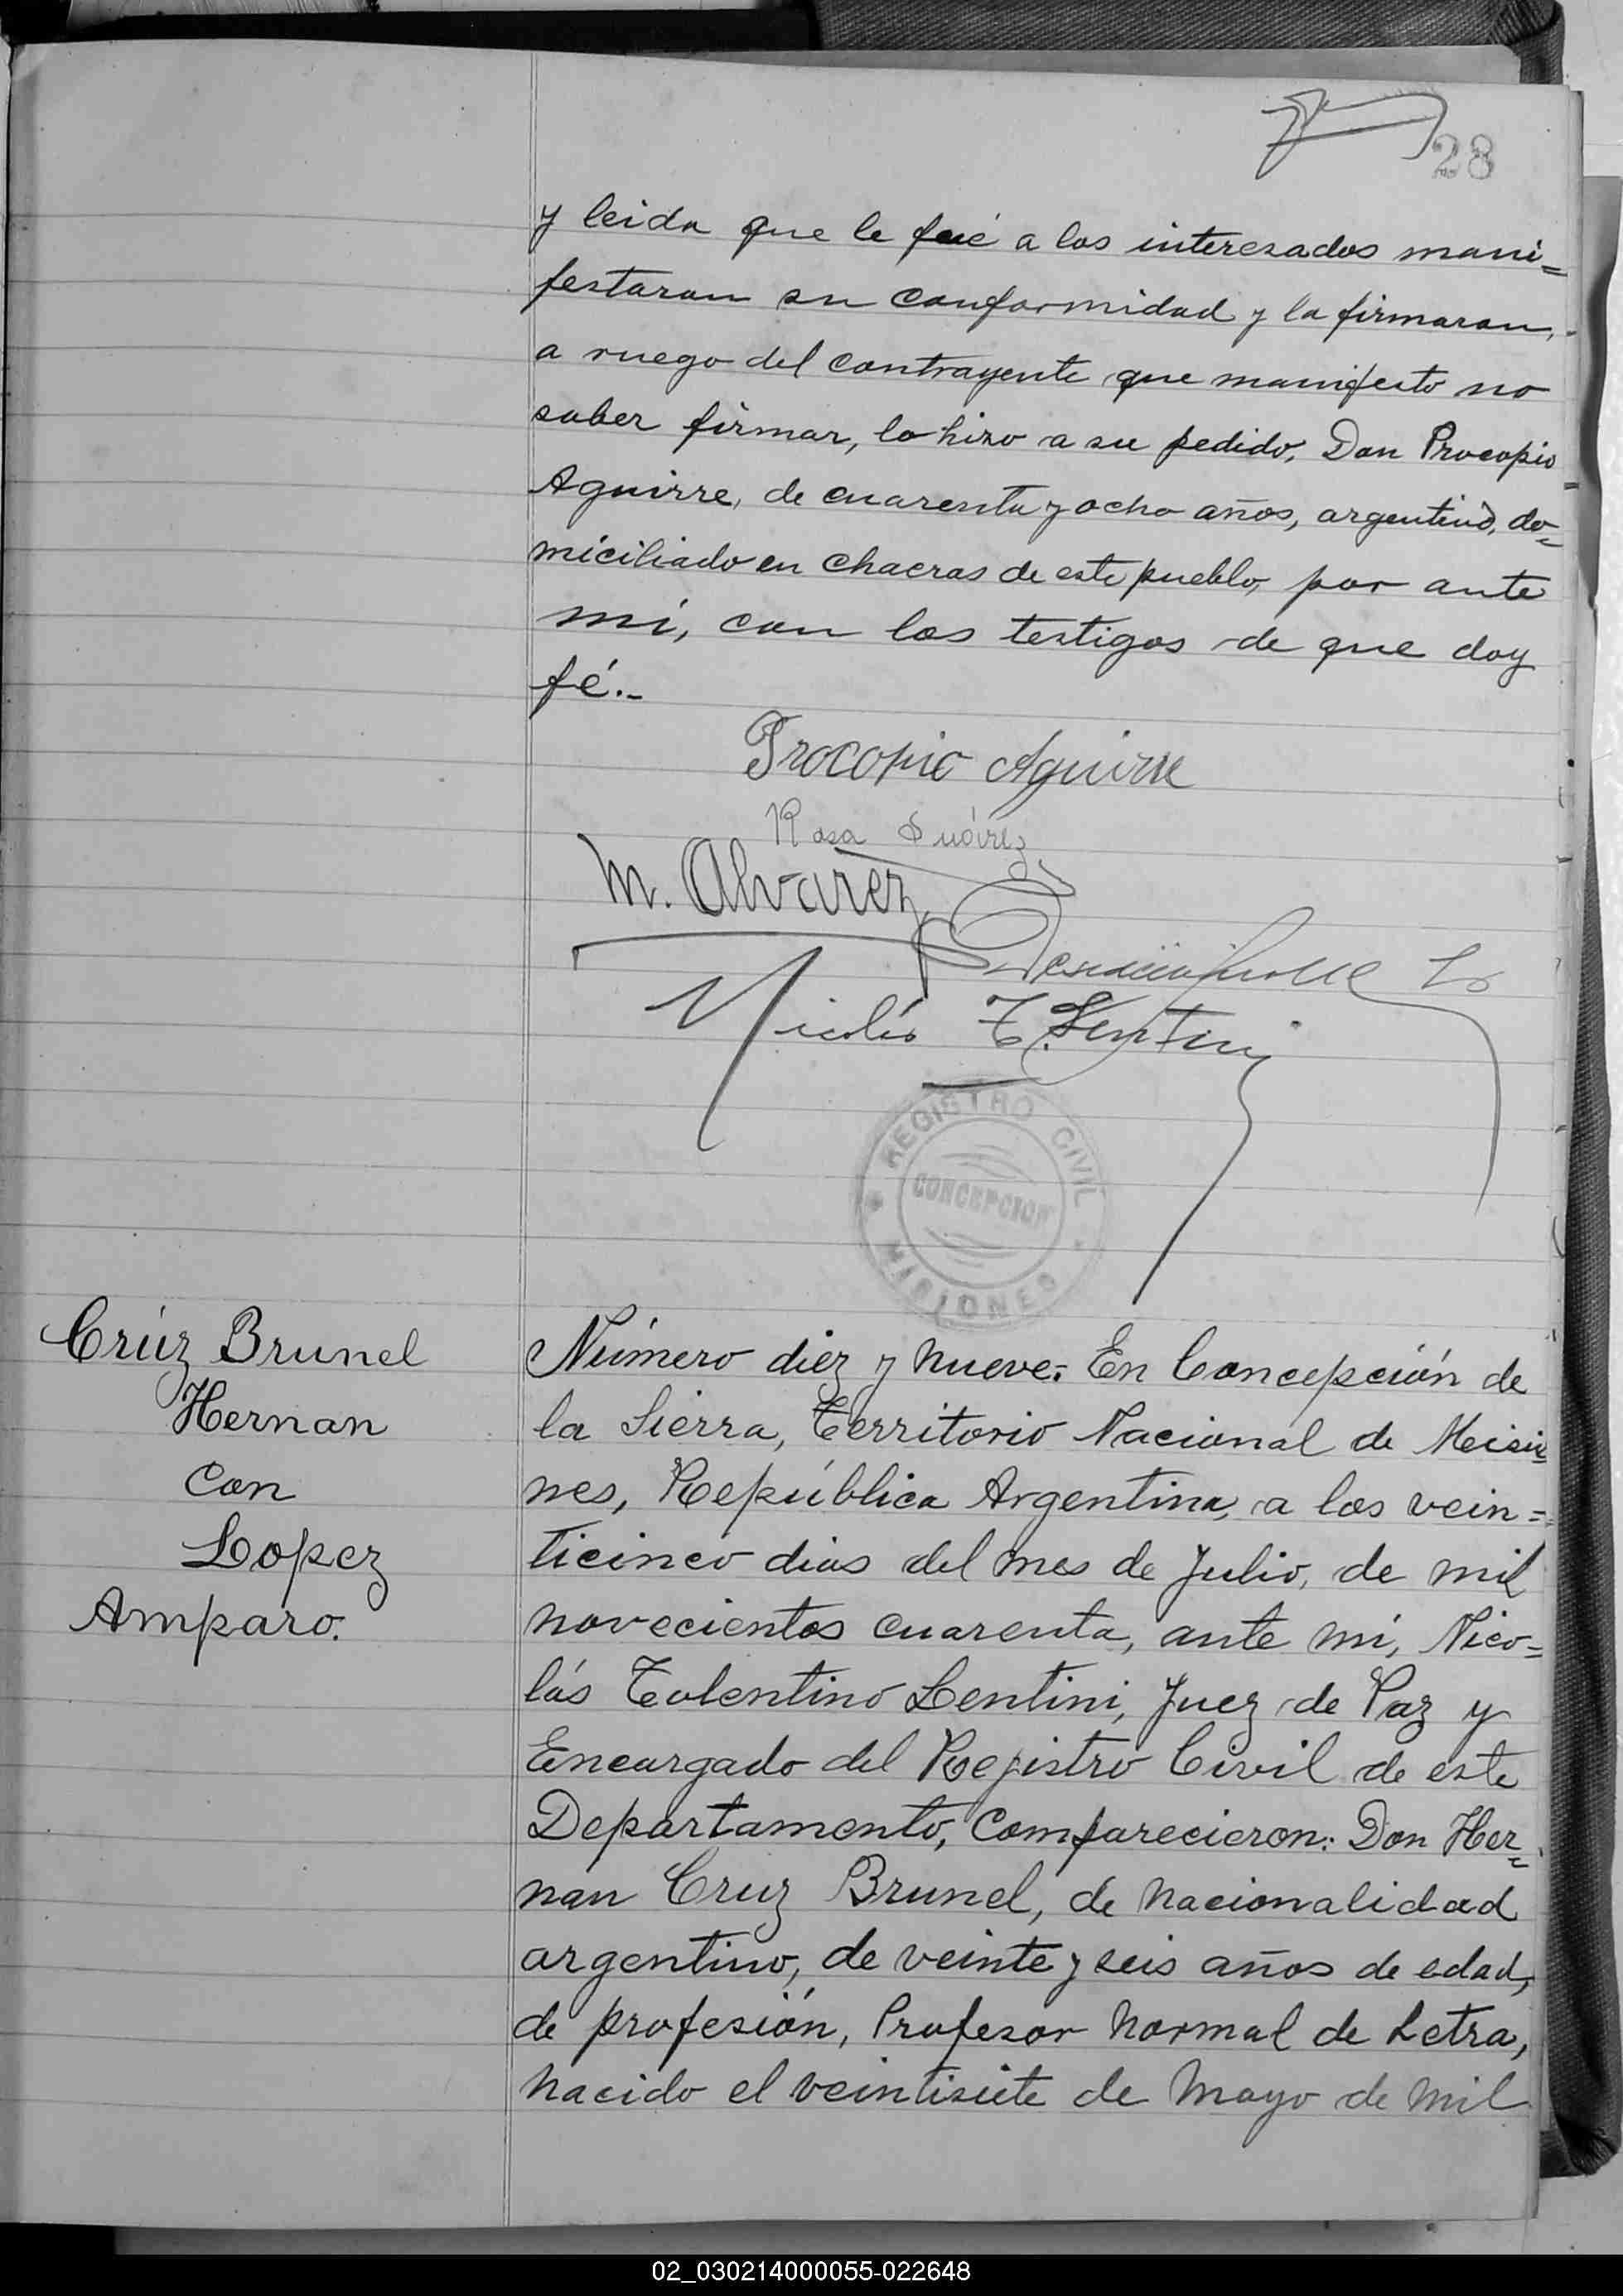 28
y leida que le fué a los interesados mani=
festaron su conformidad y la firmaron,
a ruego del contrayente que manifesto no
saber firmar, lo hizo a su pedido, Don Procopio
Aguirre, de cuarenta y ocho años, argentino, do=
miciliado en chacras de este pueblo, por ante
mi, con los testigos de que doy
fé.-
Procopio Aguirre
Rosa Suárez
M. Alvarez
Nicolás T. Lentini
REGISTRO CIVIL
CONCEPCION
MISIONES
Crúz Brunel
Hernan
Con
Lopez
Amparo.
Número diez y nueve.- En Concepción de
la Sierra, Territorio Nacional de Misio
nes, República Argentina, a los vein=
ticinco dias del mes de Julio, de mil
novecientos cuarenta, ante mi, Nico=
lás Tolentino Lentini, Juez de Paz y
Encargado del Registro Civil de este
Departamento, Comparecieron: Don Her=
nan Cruz Brunel, de nacionalidad
argentino, de veinte y seis años de edad,
de profesión, Profesor Normal de Letra,
nacido el veintisiete de Mayo de mil
02_030214000055-022648